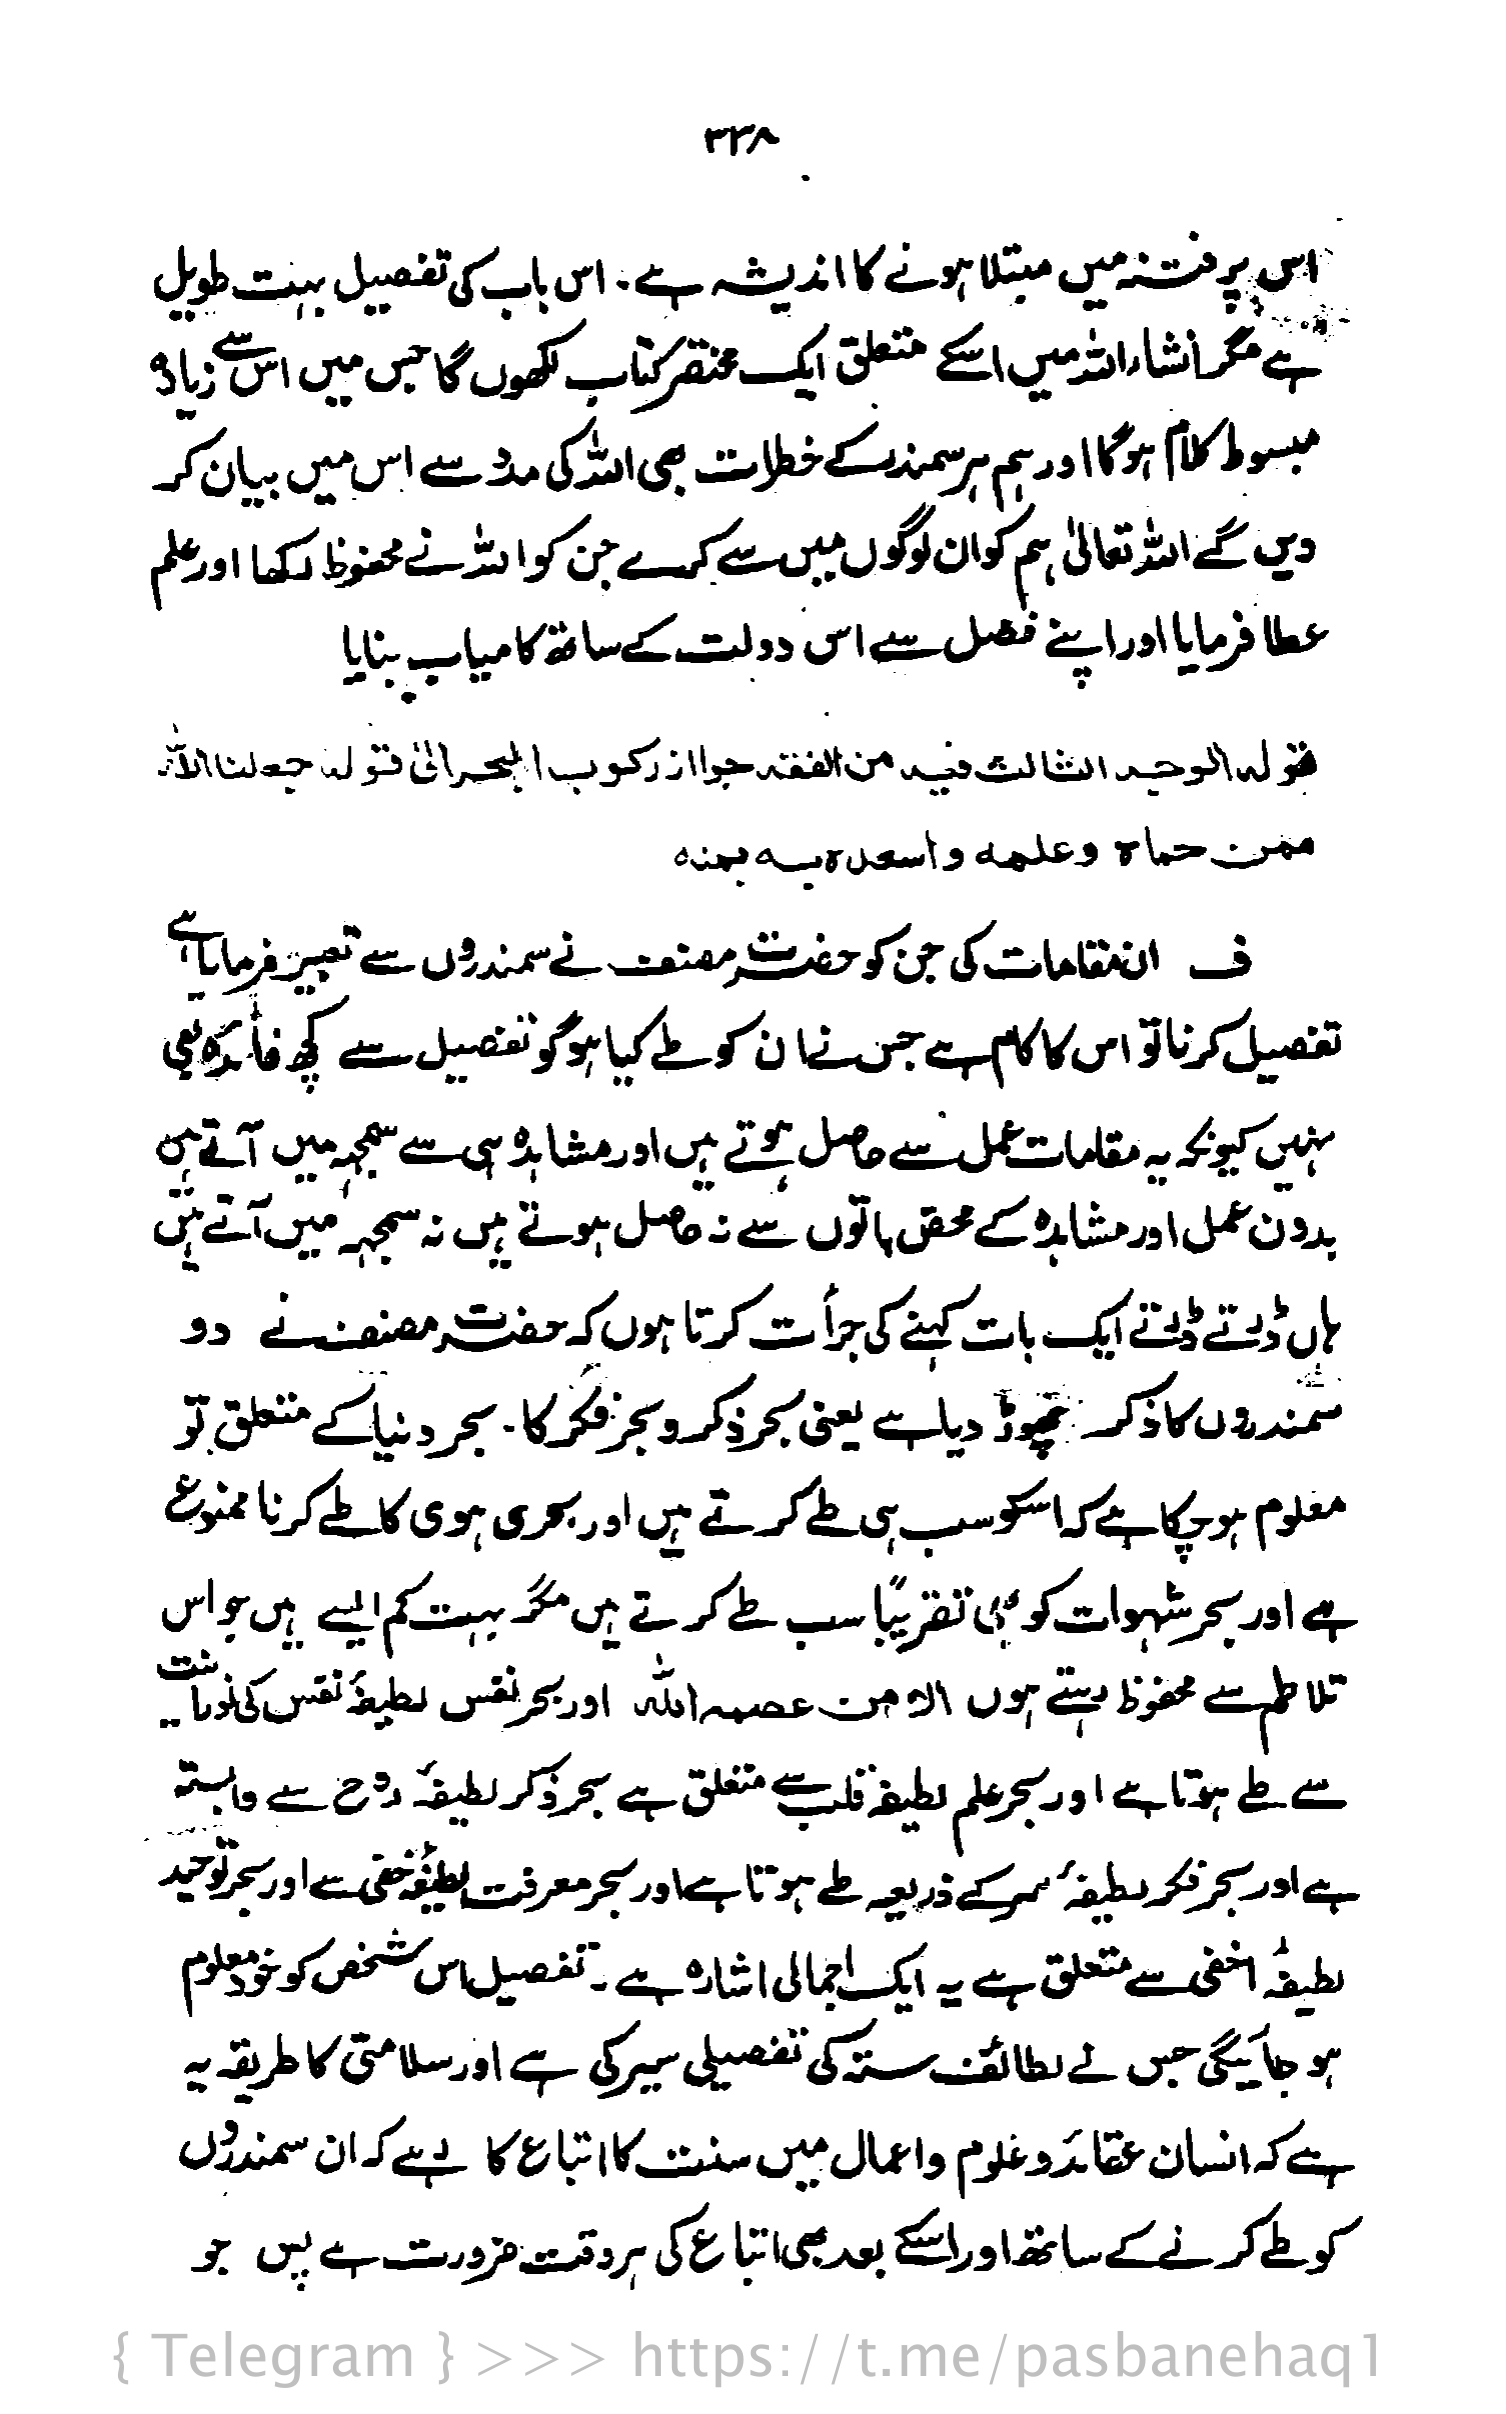 ۳۳۸
اس پر فتنہ میں مبتلا ہونے کا اندیشہ ہے۔ اس باب کی تفصیل بہت طویل
ہے مگر انشاءاللہ میں اسکے متعلق ایک مختصر کتاب لکھوں گا جس میں اس سے زیادہ
مبسوط کلام ہوگا اور ہم ہر سمندر کے خطرات بھی اللہ کی مدد سے اس میں بیان کر
دیں گے اللہ تعالیٰ ہم کو ان لوگوں میں سے کرے جن کو اللہ نے محفوظ رکھا اور علم
عطا فرمایا اور اپنے فضل سے اس دولت کے ساتھ کامیاب بنایا
قولہ الوجہ الثالث فیہ من الفقہ جواز رکوب البحر الیٰ قولہ جعلنا اللہ
ممن حماہ وعلمہ واسعدہ بہ بمنہ
ف ان مقامات کی جن کو حضرت مصنف نے سمندروں سے تعبیر فرمایا ہے
تفصیل کرنا تو اس کا کام ہے جس نے ان کو طے کیا ہو گو تفصیل سے کچھ فائدہ بھی
نہیں کیونکہ یہ مقامات عمل سے حاصل ہوتے ہیں اور مشاہدہ ہی سے سمجہہ میں آتے ہیں
بدون عمل اور مشاہدہ کے محض باتوں سے نہ حاصل ہوتے ہیں نہ سمجہہ میں آتے ہیں
ہاں ڈرتے ڈرتے ایک بات کہنے کی جرأت کرتا ہوں کہ حضرت مصنف نے دو
سمندروں کا ذکر چھوڑ دیا ہے یعنی بحر ذکر و بحر فکر کا۔ بحر دنیا کے متعلق تو
معلوم ہوچکا ہے کہ اسکو سب ہی طے کرتے ہیں اور بحری ہوی کا طے کرنا ممنوع
ہے اور بحر شہوات کو بھی تقریباً سب طے کرتے ہیں مگر بہت کم ایسے ہیں جو اس
تلاطم سے محفوظ رہتے ہوں الا من عصمہ اللہ اور بحر نفس لطیفۂ نفس کی نورانیت
سے طے ہوتا ہے اور بحر علم لطیفۂ قلب سے متعلق ہے بحر ذکر لطیفۂ روح سے وابستہ
ہے اور بحر فکر لطیفۂ سر کے ذریعہ طے ہوتا ہے اور بحر معرفت لطیفۂ خفی سے اور بحر توحید
لطیفۂ اخفی سے متعلق ہے یہ ایک اجمالی اشارہ ہے۔ تفصیل اس شخص کو خود معلوم
ہو جائیگی جس نے لطائف ستہ کی تفصیلی سیر کی ہے اور سلامتی کا طریقہ یہ
ہے کہ انسان عقائد و علوم و اعمال میں سنت کا اتباع کا رہے کہ ان سمندروں
کو طے کرنے کے ساتھ اور اسکے بعد بھی اتباع کی ہر وقت ضرورت ہے پس جو
{ Telegram } >>> https://t.me/pasbanehaq1